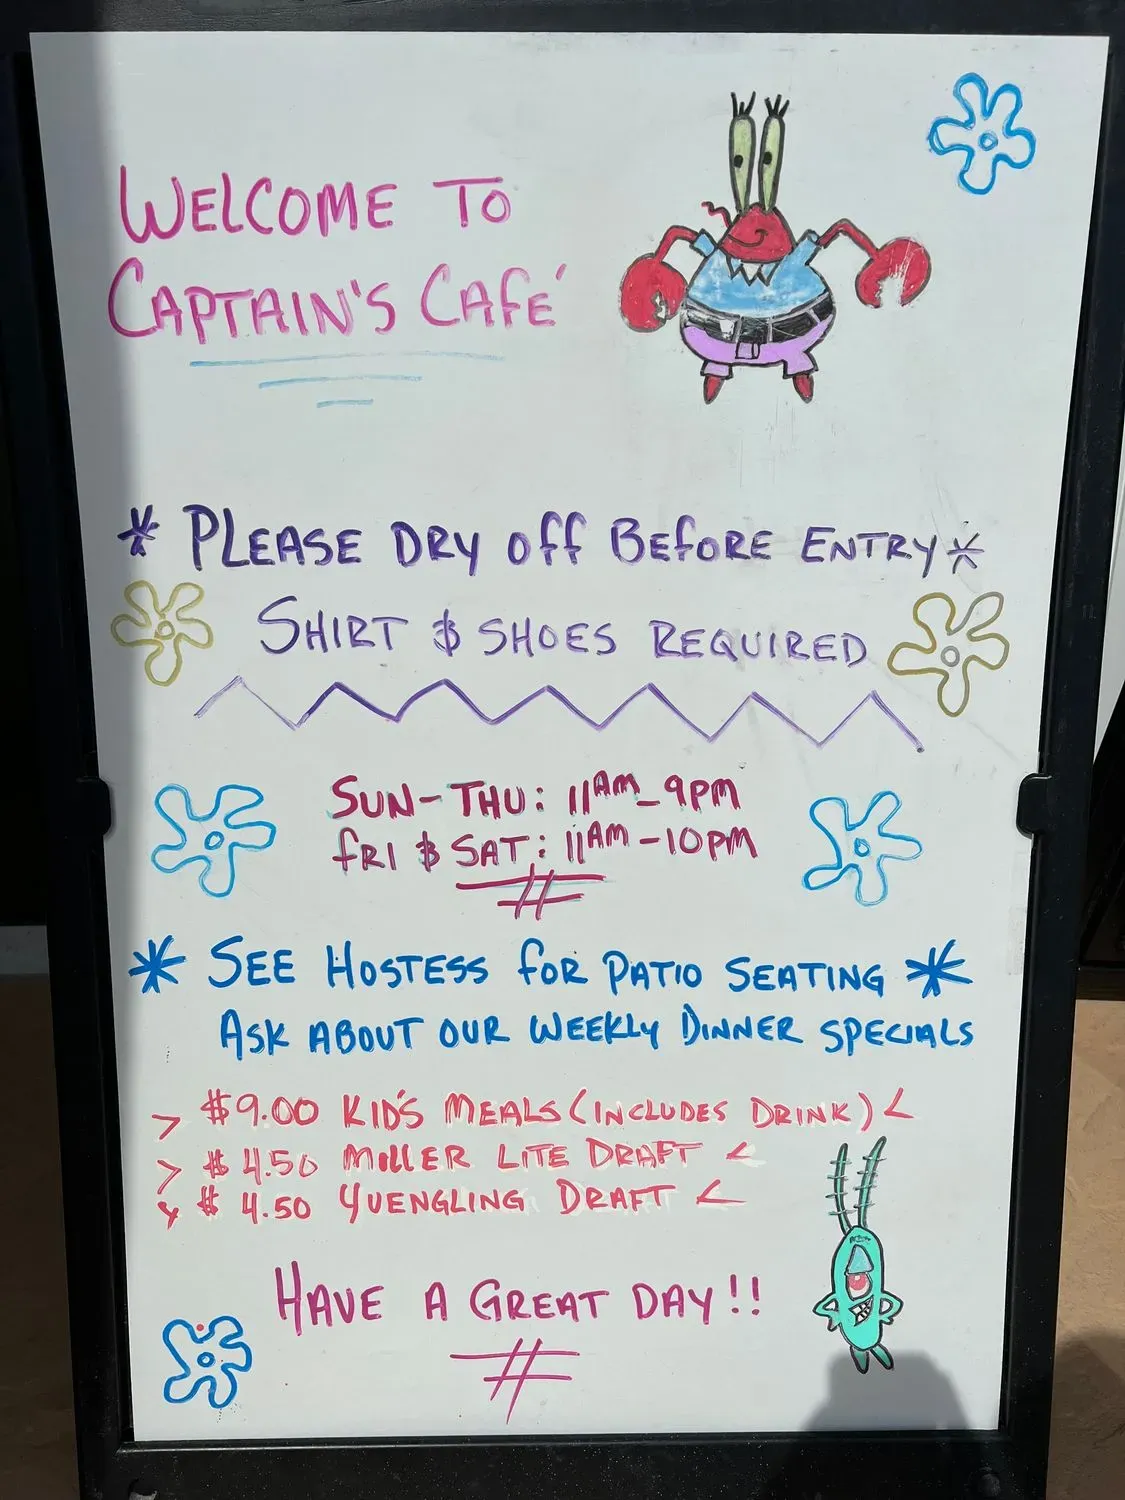 WELCOME TO
CAPTAIN'S CAFE´
* PLEASE DRY OFF BEFORE ENTRY *
SHIRT & SHOES REQUIRED
SUN-THU: 11AM-9PM
FRI & SAT: 11AM-10PM
* SEE HOSTESS FOR PATIO SEATING *
ASK ABOUT OUR WEEKLY DINNER SPECIALS
> $9.00 KID'S MEALS (INCLUDES DRINK) <
> $4.50 MILLER LITE DRAFT <
> $4.50 YUENGLING DRAFT <
HAVE A GREAT DAY!!